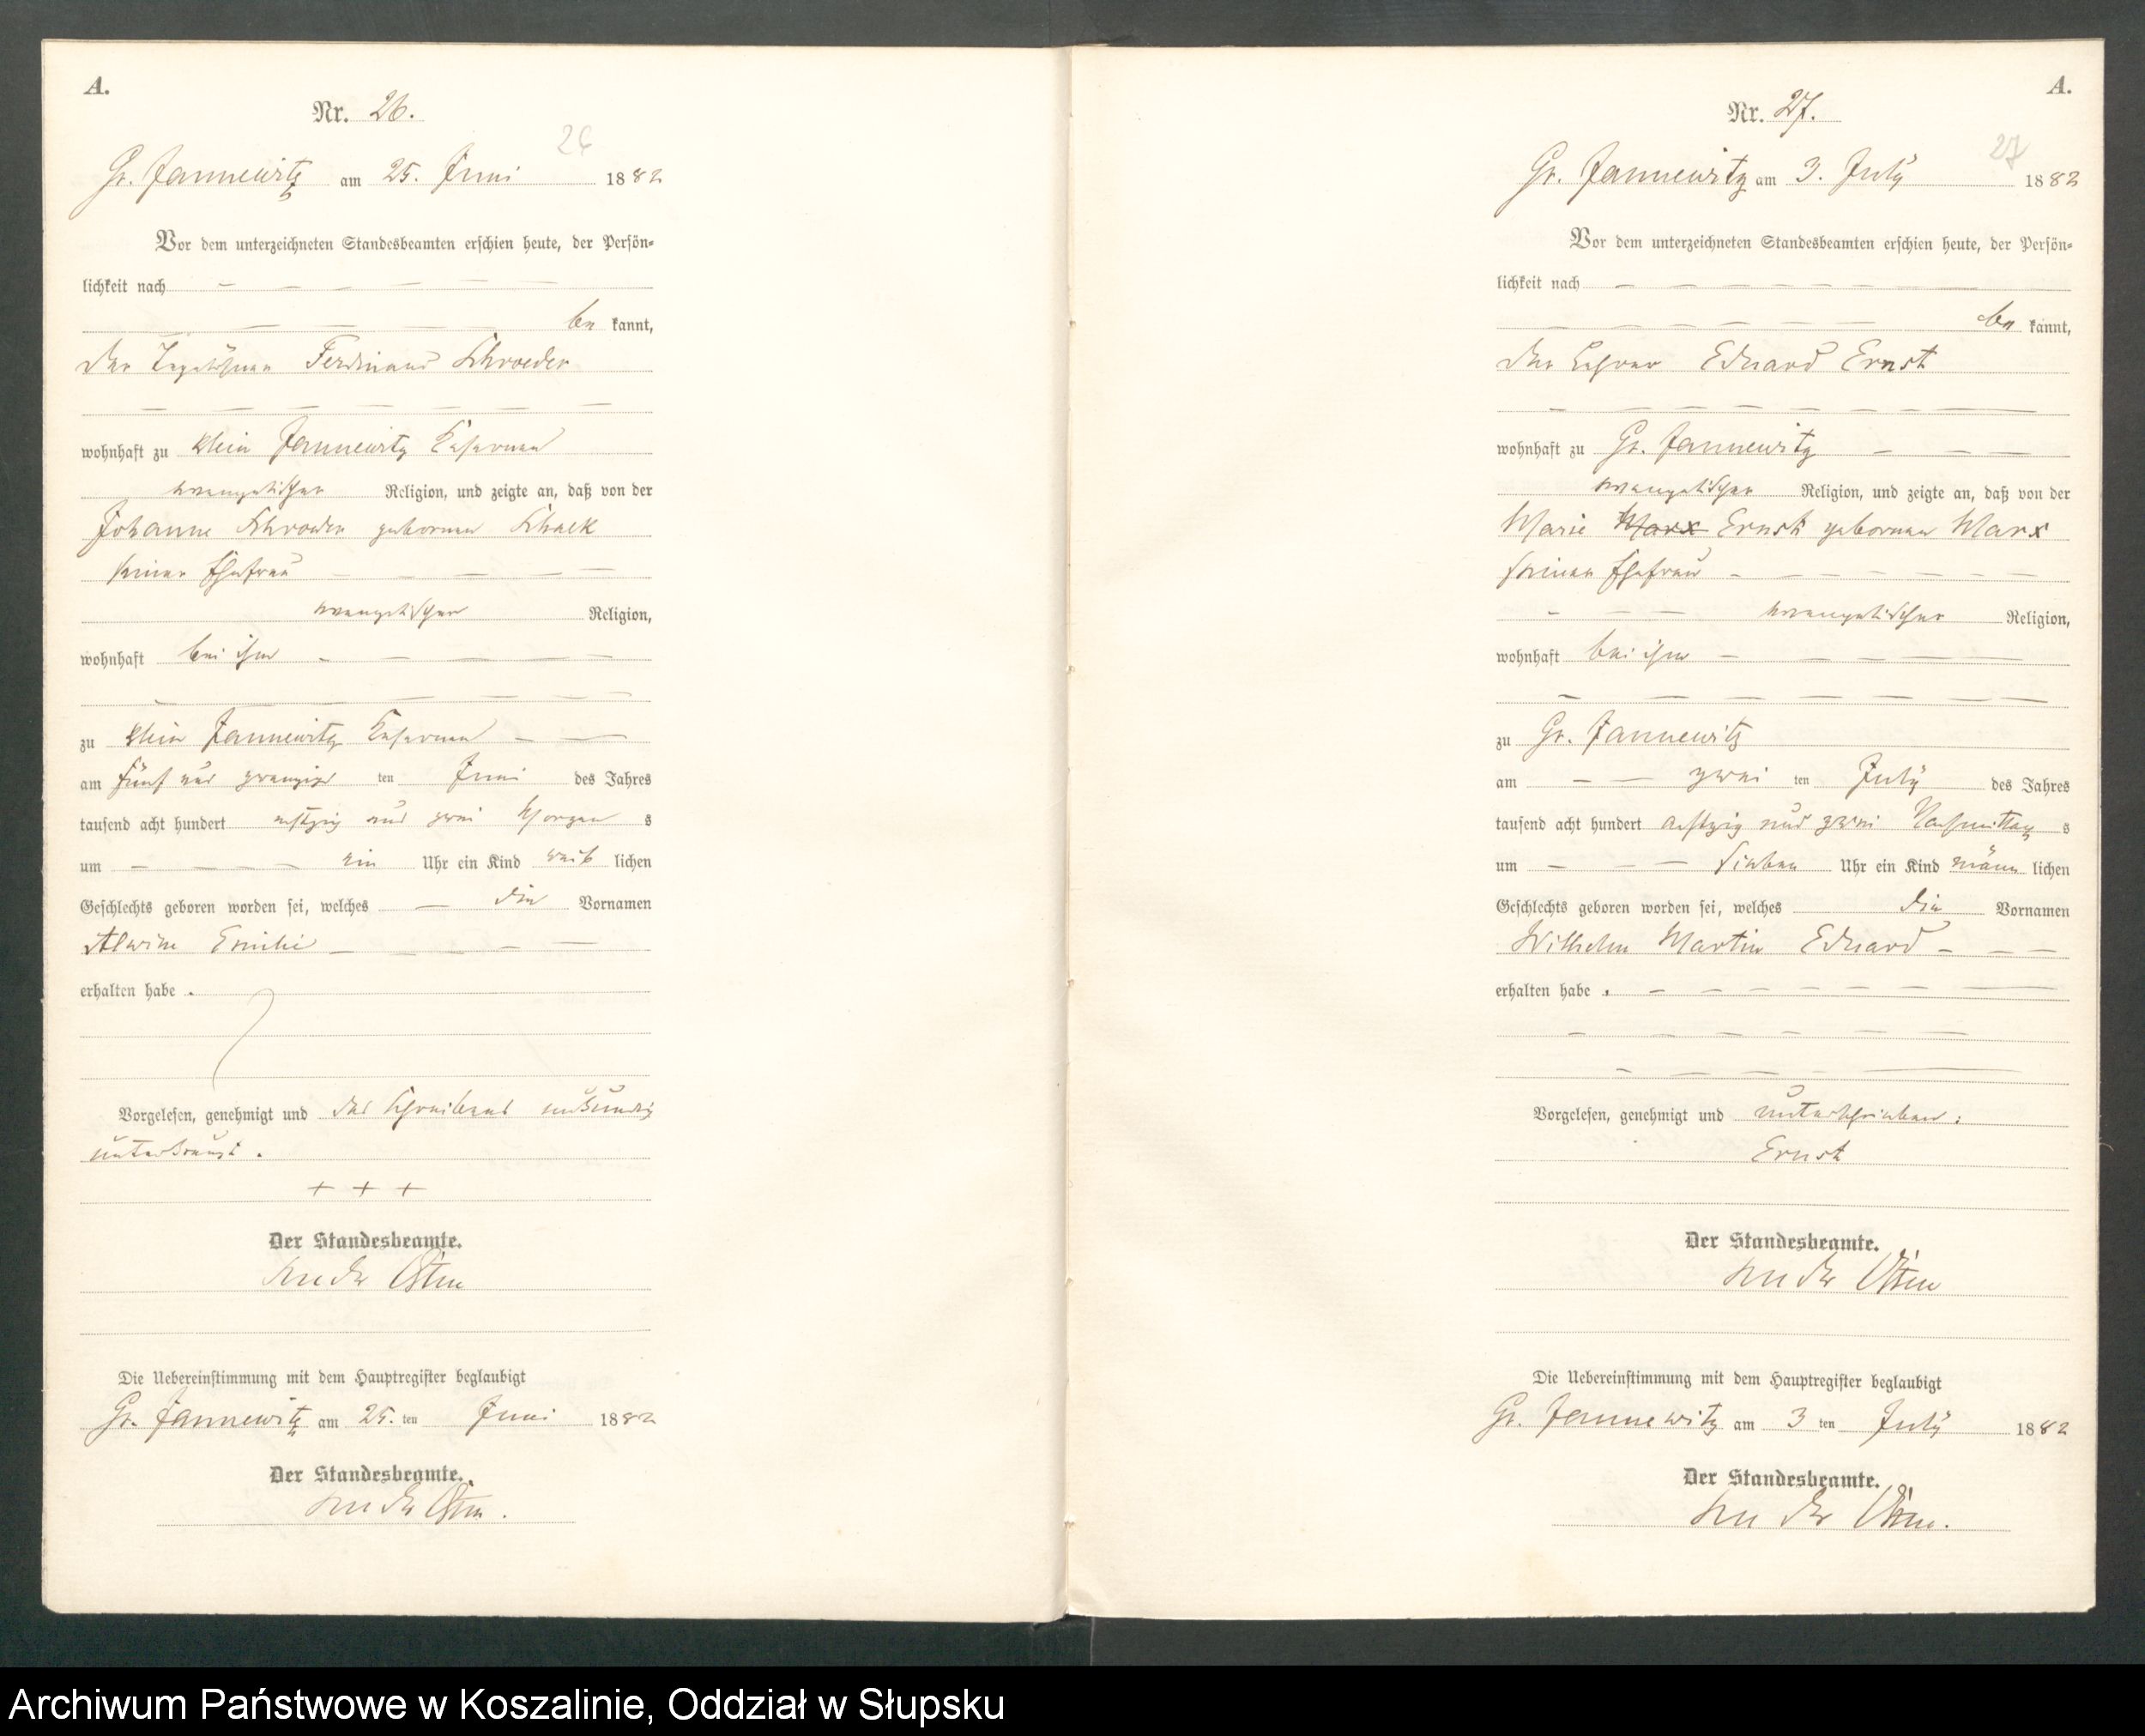 A.
Nr. 26.
26
Gr. Jannewitz am 25. Juni 1882
Vor dem unterzeichneten Standesbeamten erschien heute, der Persön=
lichkeit nach
be kannt,
der Tagelöhner Ferdinand Schroeder
wohnhaft zu Klein Jannewitz
evangelischer Religion, und zeigte an, daß von der
Johanne Schroeder geborenen Schack
seiner Ehefrau
evangelischer Religion,
wohnhaft bei ihm
zu Klein Jannewitz
am fünf und zwanzig ten Juni des Jahres
tausend acht hundert achtzig und zwei Morgen s
um ein Uhr ein Kind weib lichen
Geschlechts geboren worden sei, welches die Vornamen
Alwine Emilie
erhalten habe .
Vorgelesen, genehmigt und des Schreibens unkundig
unterkreuzt .
+ + +
Der Standesbeamte.
von der Osten
Die Uebereinstimmung mit dem Hauptregister beglaubigt
Gr. Jannewitz am 25. ten Juni 1882
Der Standesbeamte.
von der Osten.
A.
Nr. 27.
27
Gr. Jannewitz am 3. July 1882
Vor dem unterzeichneten Standesbeamten erschien heute, der Persön=
lichkeit nach
be kannt,
der Lehrer Eduard Ernst
wohnhaft zu Gr. Jannewitz
evangelischer Religion, und zeigte an, daß von der
Marie Marx Ernst geborenen Marx
seiner Ehefrau
evangelischer Religion,
wohnhaft bei ihm
zu Gr. Jannewitz
am zwei ten July des Jahres
tausend acht hundert achtzig und zwei Nachmittag s
um sieben Uhr ein Kind männ lichen
Geschlechts geboren worden sei, welches die Vornamen
Wilhelm Martin Eduard
erhalten habe .
Vorgelesen, genehmigt und unterschrieben:
Ernst
Der Standesbeamte.
von der Osten
Die Uebereinstimmung mit dem Hauptregister beglaubigt
Gr. Jannewitz am 3 ten July 1882
Der Standesbeamte.
von der Osten.
Archiwum Państwowe w Koszalinie, Oddział w Słupsku